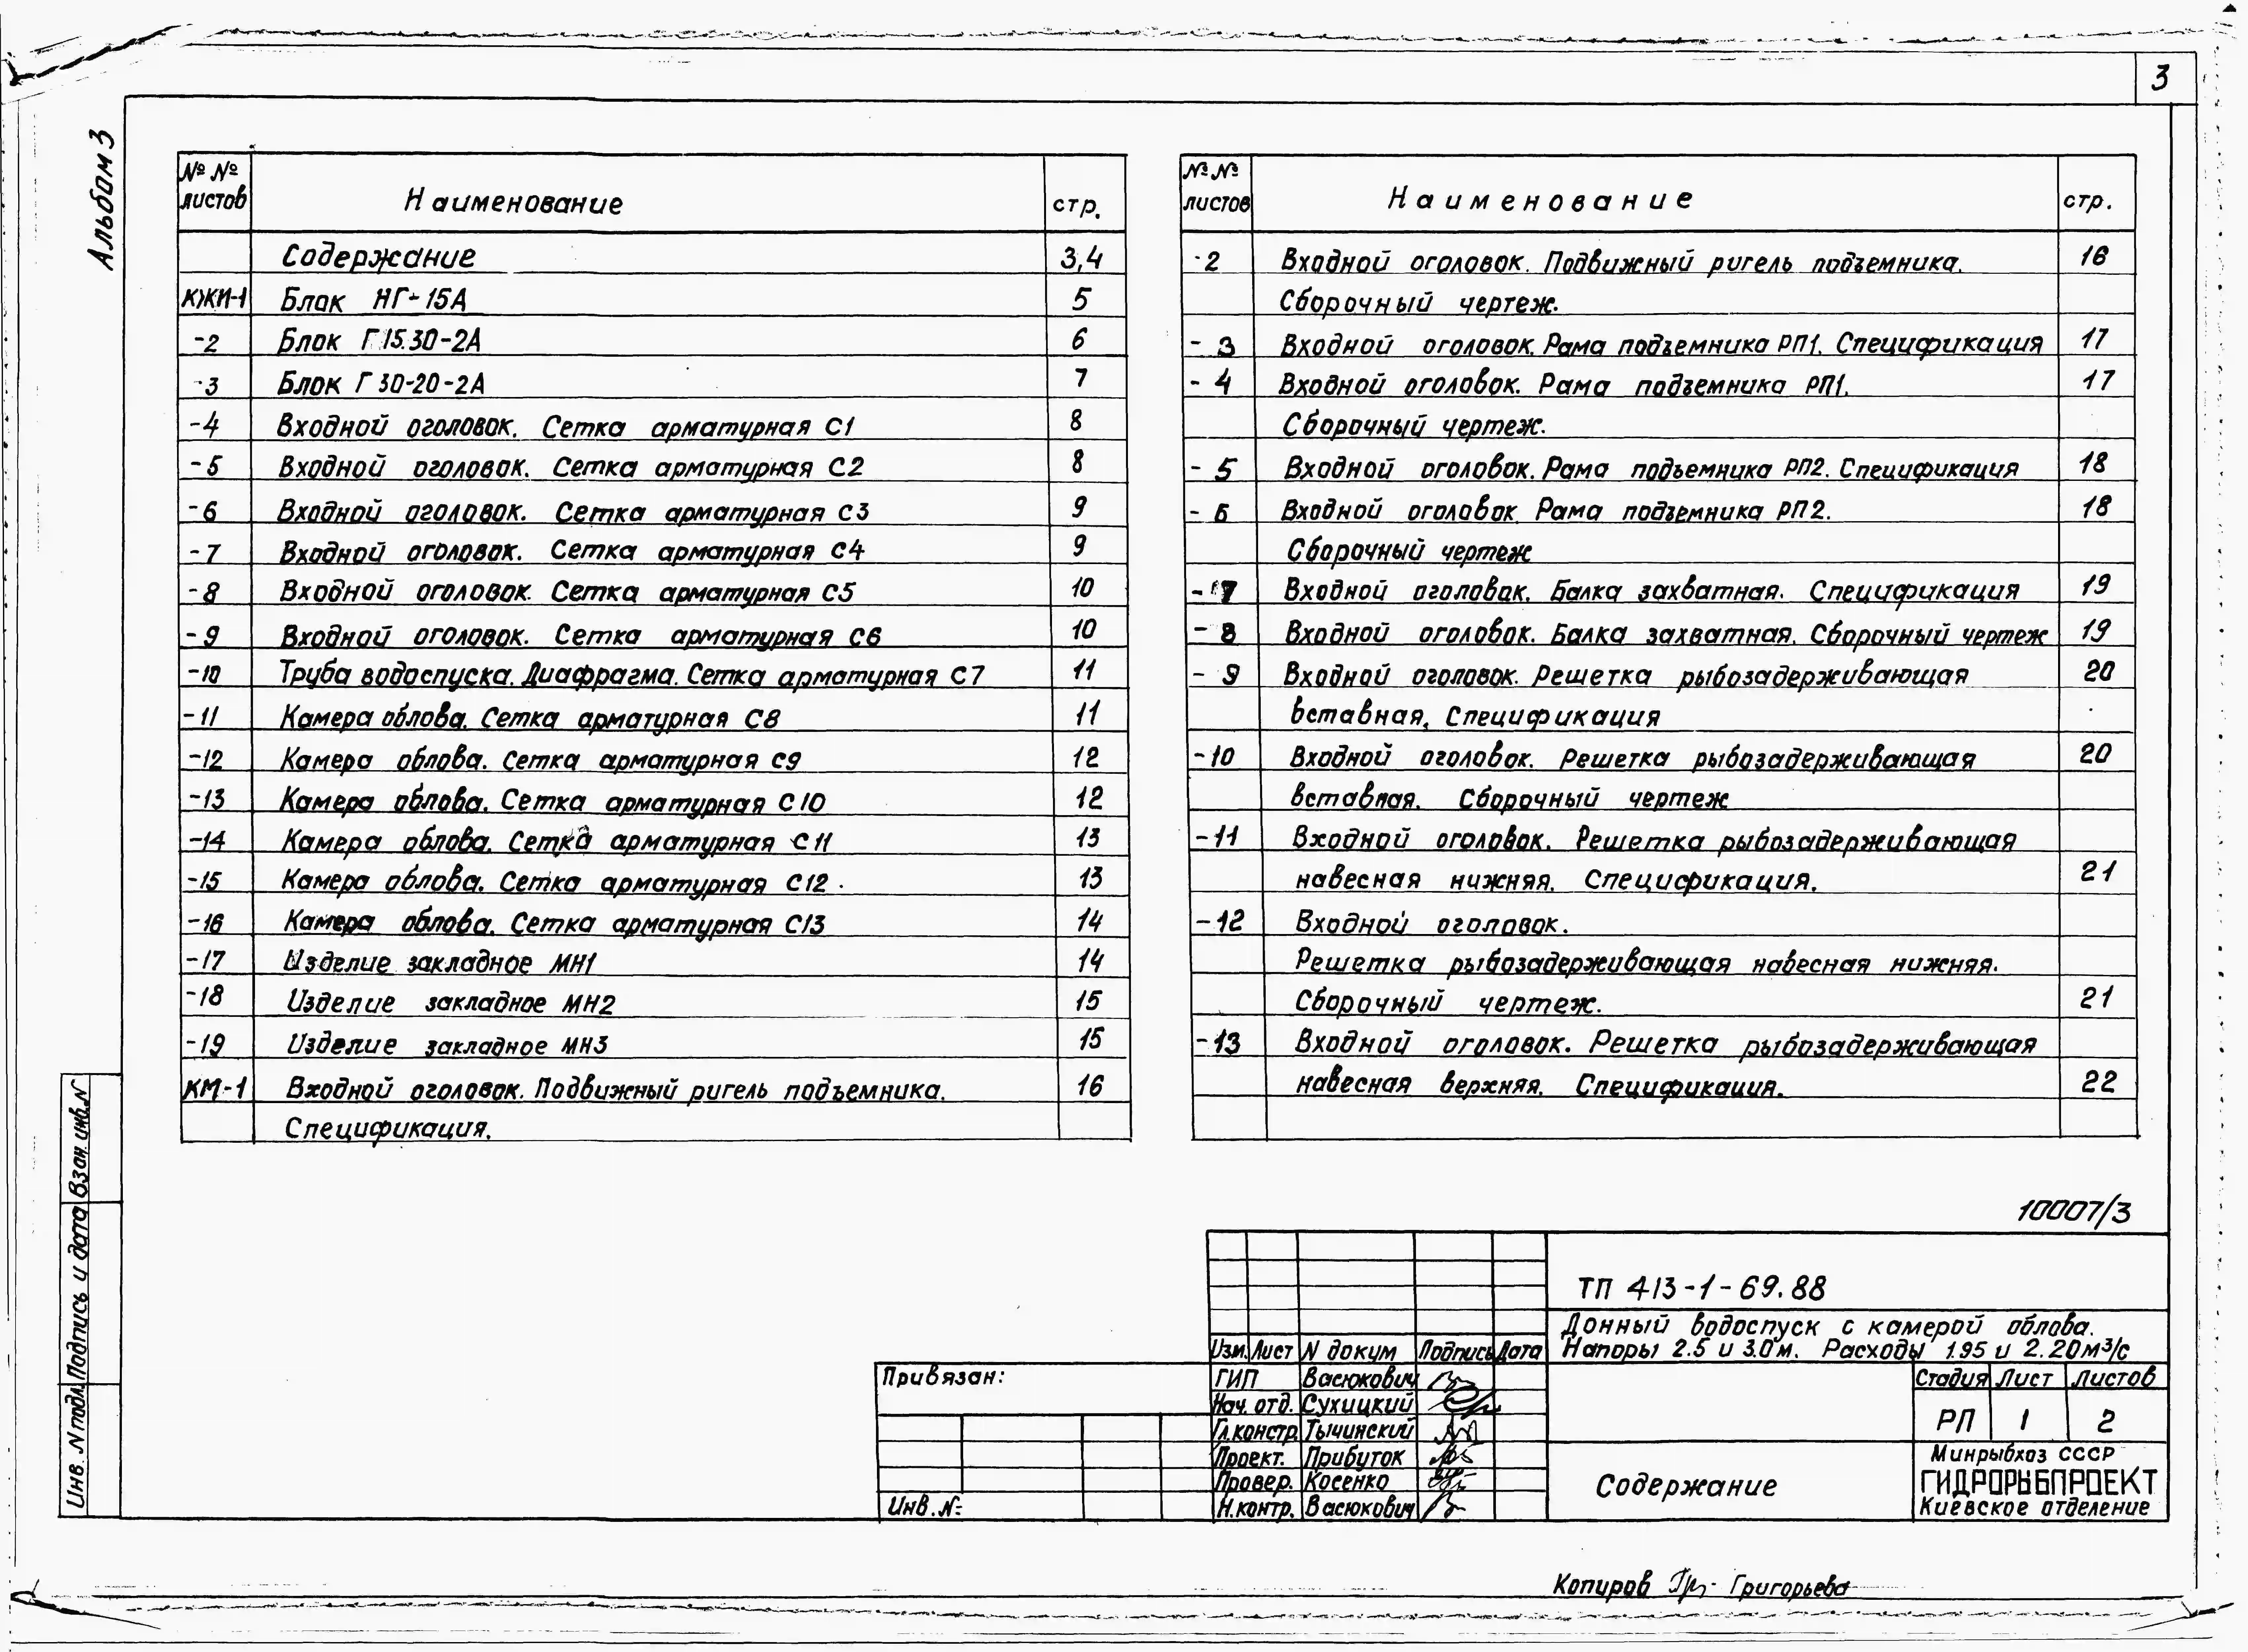 3
Альбом 3
№ № листов Наименование стр.
Содержание 3,4
КЖИ-1 Блок НГ-15А 5
-2 Блок Г 15.30-2А 6
-3 Блок Г 30-20-2А 7
-4 Входной оголовок. Сетка арматурная С1 8
-5 Входной оголовок. Сетка арматурная С2 8
-6 Входной оголовок. Сетка арматурная С3 9
-7 Входной оголовок. Сетка арматурная С4 9
-8 Входной оголовок. Сетка арматурная С5 10
-9 Входной оголовок. Сетка арматурная С6 10
-10 Труба водоспуска. Диафрагма. Сетка арматурная С7 11
-11 Камера облова. Сетка арматурная С8 11
-12 Камера облова. Сетка арматурная С9 12
-13 Камера облова. Сетка арматурная С10 12
-14 Камера облова. Сетка арматурная С11 13
-15 Камера облова. Сетка арматурная С12 13
-16 Камера облова. Сетка арматурная С13 14
-17 Изделие закладное МН1 14
-18 Изделие закладное МН2 15
-19 Изделие закладное МН3 15
КМ-1 Входной оголовок. Подвижный ригель подъемника. 16
Спецификация.
№ № листов Наименование стр.
-2 Входной оголовок. Подвижный ригель подъемника. 16
Сборочный чертеж.
-3 Входной оголовок. Рама подъемника РП1. Спецификация 17
-4 Входной оголовок. Рама подъемника РП1. 17
Сборочный чертеж.
-5 Входной оголовок. Рама подъемника РП2. Спецификация 18
-6 Входной оголовок Рама подъемника РП2. 18
Сборочный чертеж
-7 Входной оголовок. Балка захватная. Спецификация 19
-8 Входной оголовок. Балка захватная. Сборочный чертеж 19
-9 Входной оголовок. Решетка рыбозадерживающая 20
вставная. Спецификация
-10 Входной оголовок. Решетка рыбозадерживающая 20
вставная. Сборочный чертеж
-11 Входной оголовок. Решетка рыбозадерживающая
навесная нижняя. Спецификация. 21
-12 Входной оголовок.
Решетка рыбозадерживающая навесная нижняя.
Сборочный чертеж. 21
-13 Входной оголовок. Решетка рыбозадерживающая
навесная верхняя. Спецификация. 22
10007/3
ТП 413-1-69.88
Донный водоспуск с камерой облова.
Напоры 2.5 и 3.0 м. Расходы 1.95 и 2.20 м³/с
Изм. Лист N докум Подпись Дата
Привязан:
ГИП Васюкович
Нач. отд. Сухицкий
Гл.констр. Тычинский
Проект. Прибуток
Провер. Косенко
Н.контр. Васюкович
Инв.№
Стадия Лист Листов
РП 1 2
Содержание
Минрыбхоз СССР
ГИДРОРЫБПРОЕКТ
Киевское отделение
Инв. N подл. Подпись и дата Взам. инв. N
Копиров Григорьева